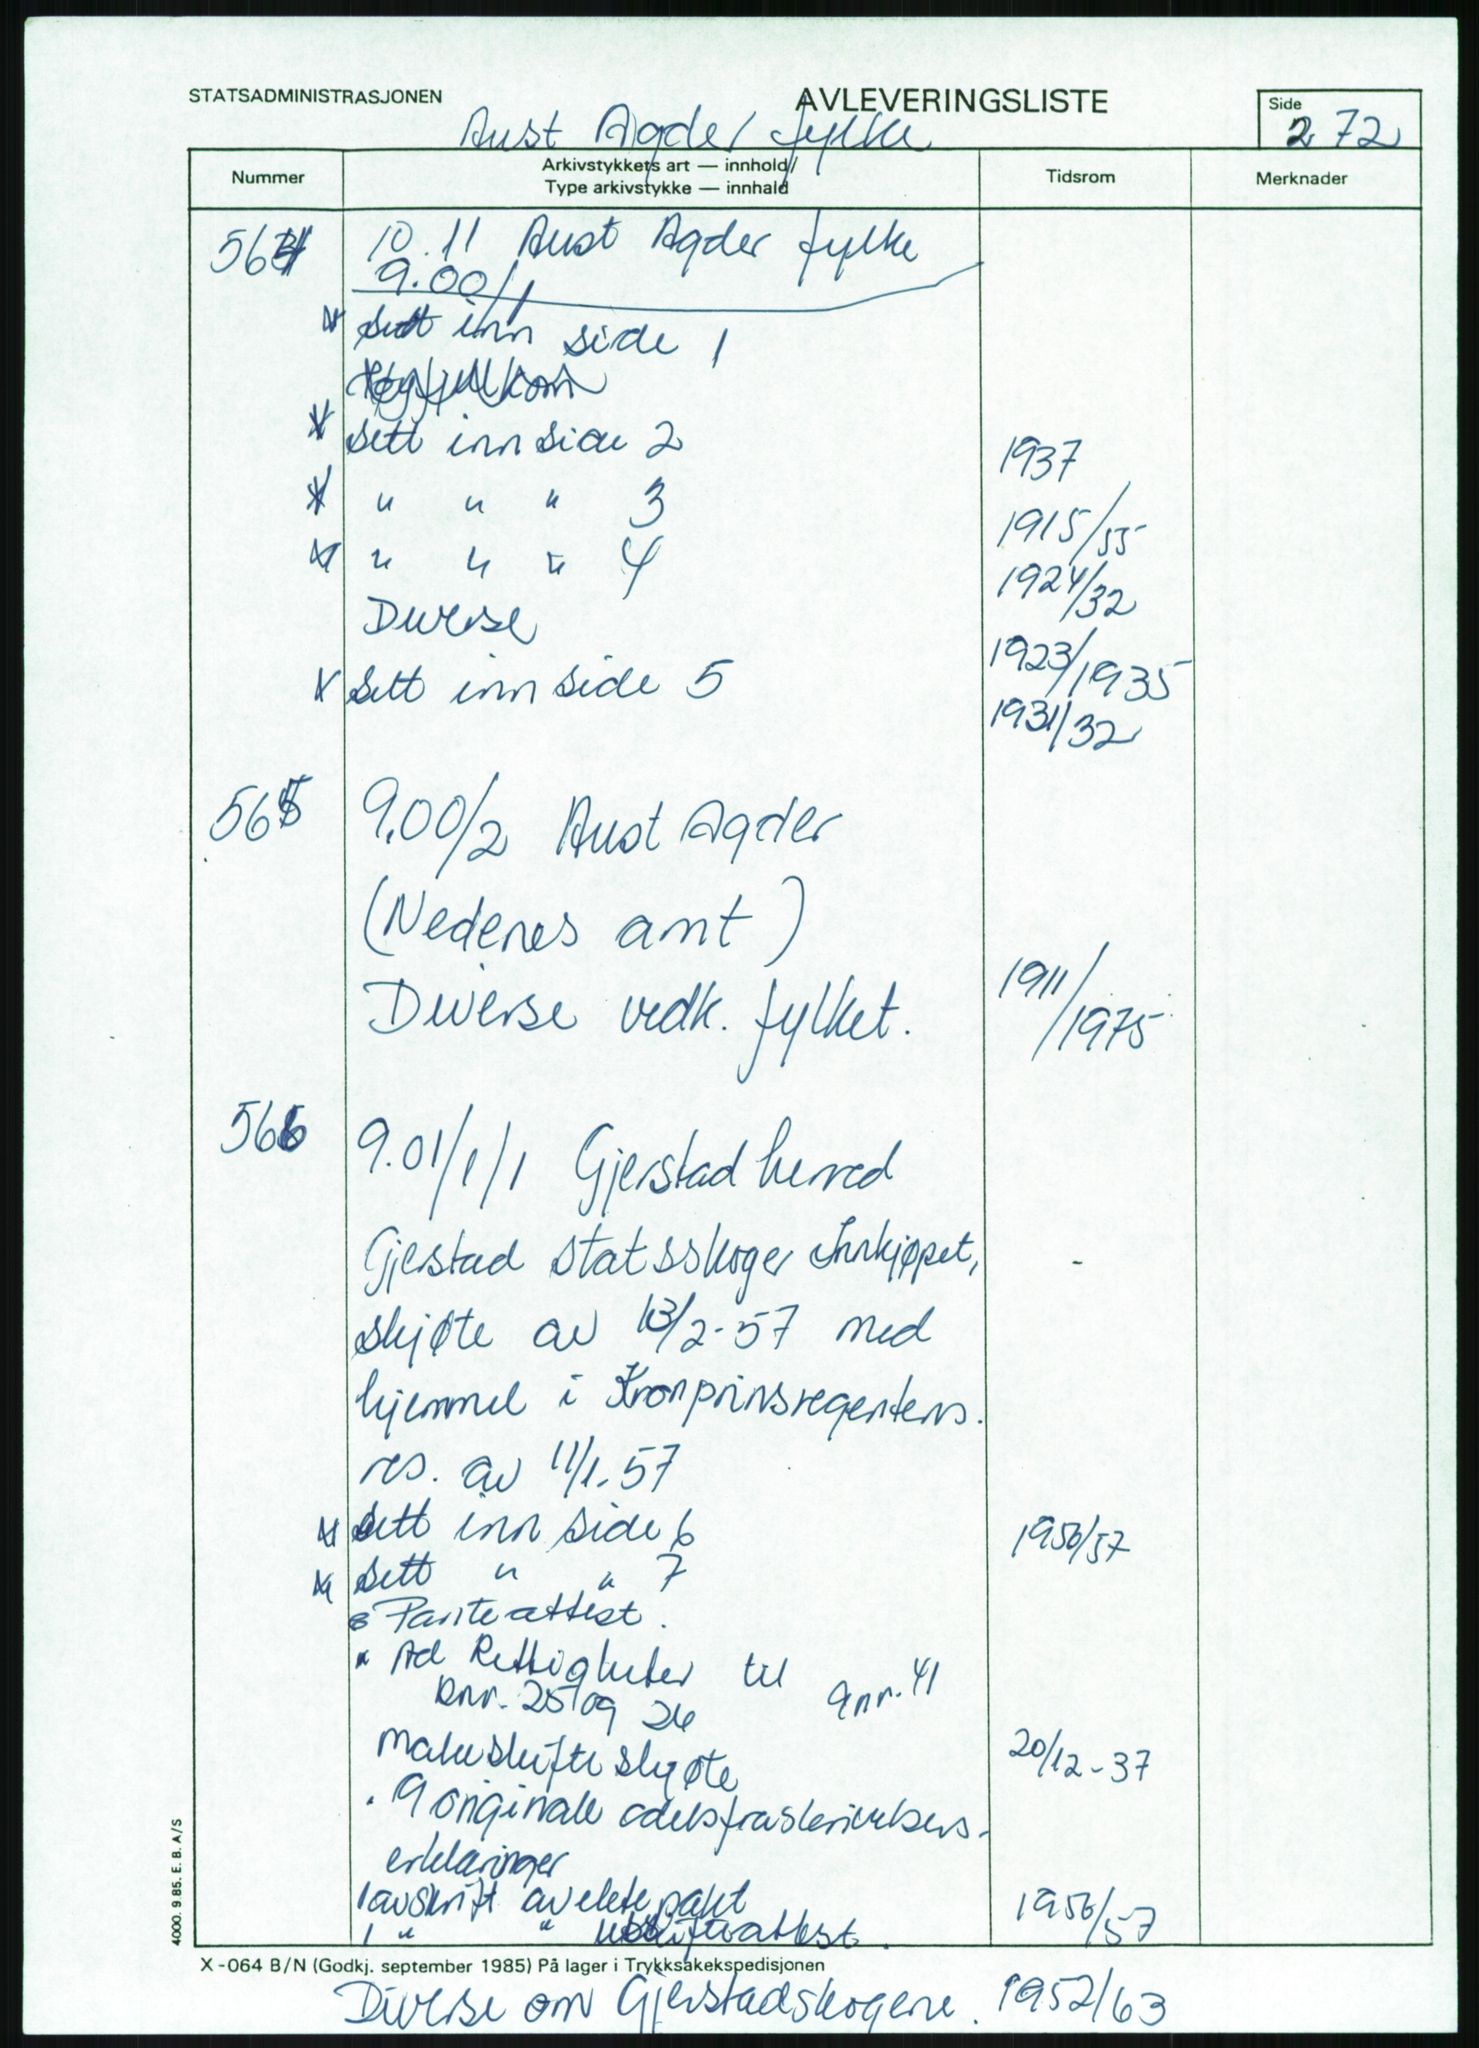 STATSADMINISTRASJONEN
AVLEVERINGSLISTE
Side
272
Aust Agder fylke
Nummer
Arkivstykkets art — innhold/
Type arkivstykke — innhald
Tidsrom
Merknader
564 10.11 Aust Agder fylke
9.00/1
* Sett inn side 1
* Sett inn side 2 1937
* " " " 3 1915/55
* " " " 4 1924/32
Diverse 1923/1935
* Sett inn side 5 1931/32
565 9.00/2 Aust Agder
(Nedenes amt)
Diverse vedk. fylket. 1911/1975
566 9.01/1/1 Gjerstad herred
Gjerstad statsskoger innkjøpet,
skjøte av 13/2-57 med
hjemmel i Kronprinsregentens.
res. av 11/1-57
* Sett inn side 6 1956/57
* Sett " " 7
Panteattest.
" Ad Rettigheter til gnr. 41
bnr. 25 og 26
Makeskifteskjøte 20/12-37
. 9 originale odelsfraskrivelses-
erklæringer
1 avskrift av ektepakt 1956/57
1 " " uskifteattest.
4000. 9 85. E. B. A/S
X-064 B/N (Godkj. september 1985) På lager i Trykksakekspedisjonen
Diverse om Gjerstadskogene. 1952/63